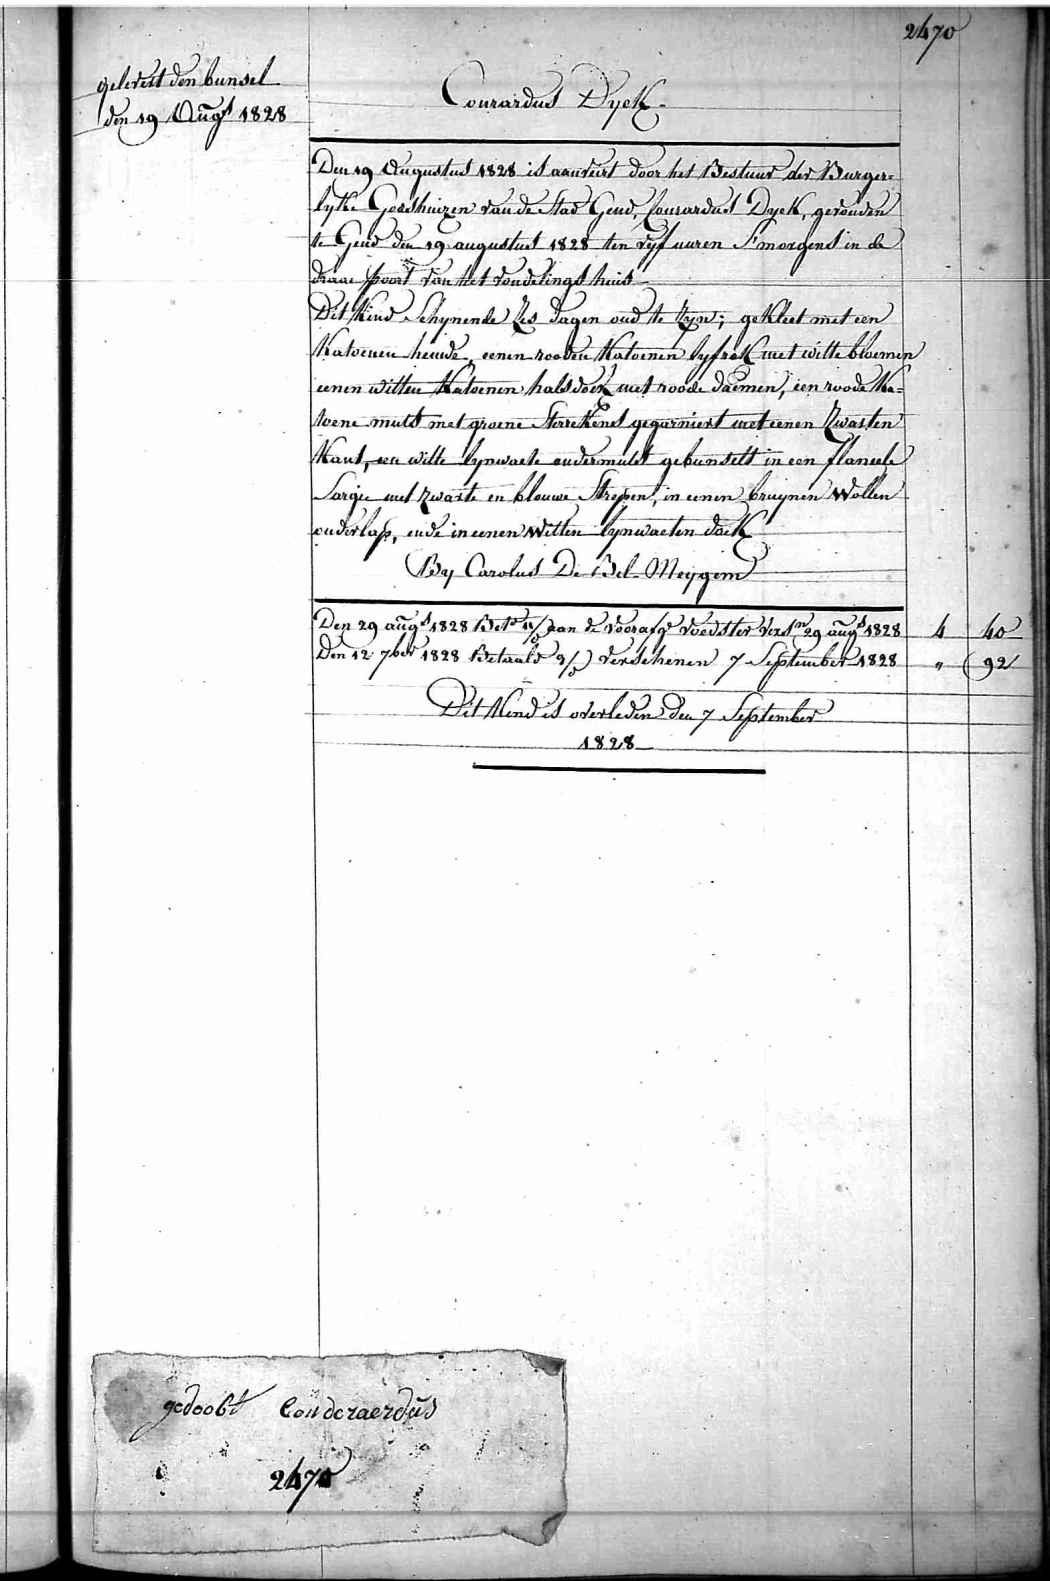 2470
gelevert den bunsel
den 19 Augs 1828
Conrardus Dyck.
Den 19 Augustus 1828 is aanveirt door het Bestuur der Burger=
lyke Godshuizen van de Stad Gend, Conrardus Dyck, gevonden
te Gend den 19 augustus 1828 ten vyf uuren S'morgens in de
draae poort van het vondelings huis
Dit Kind Schynende Zes dagen oud te Zyn; gekleet met een
Katoenen hemde, eenen rooden Katoenen lyfrok met witte bloemen
eenen witten Katoenen halsdoek met roode daemen, een roode Ka=
toene muts met groene Sterrekens gegarniert met eenen Zwarten
Kant, een witte lynwaete ondermuts gebunselt in een flaneele
Sargie met zwarte en blouwe Strepen, in eenen bruynen Wollen
onderlap, ende in eenen Witten lynwaeten doek
By Carolus De Bel Meygem
Den 29 augs 1828 Bet 11/ aan de voorafge voedster Versn 29 augs 1828 4 40
Den 12 7ber 1828 Betaald 9/ Verschenen 7 September 1828 " 92
Dit Kind is overleden den 7 September
1828
gedoobt Conderaerdus
2470